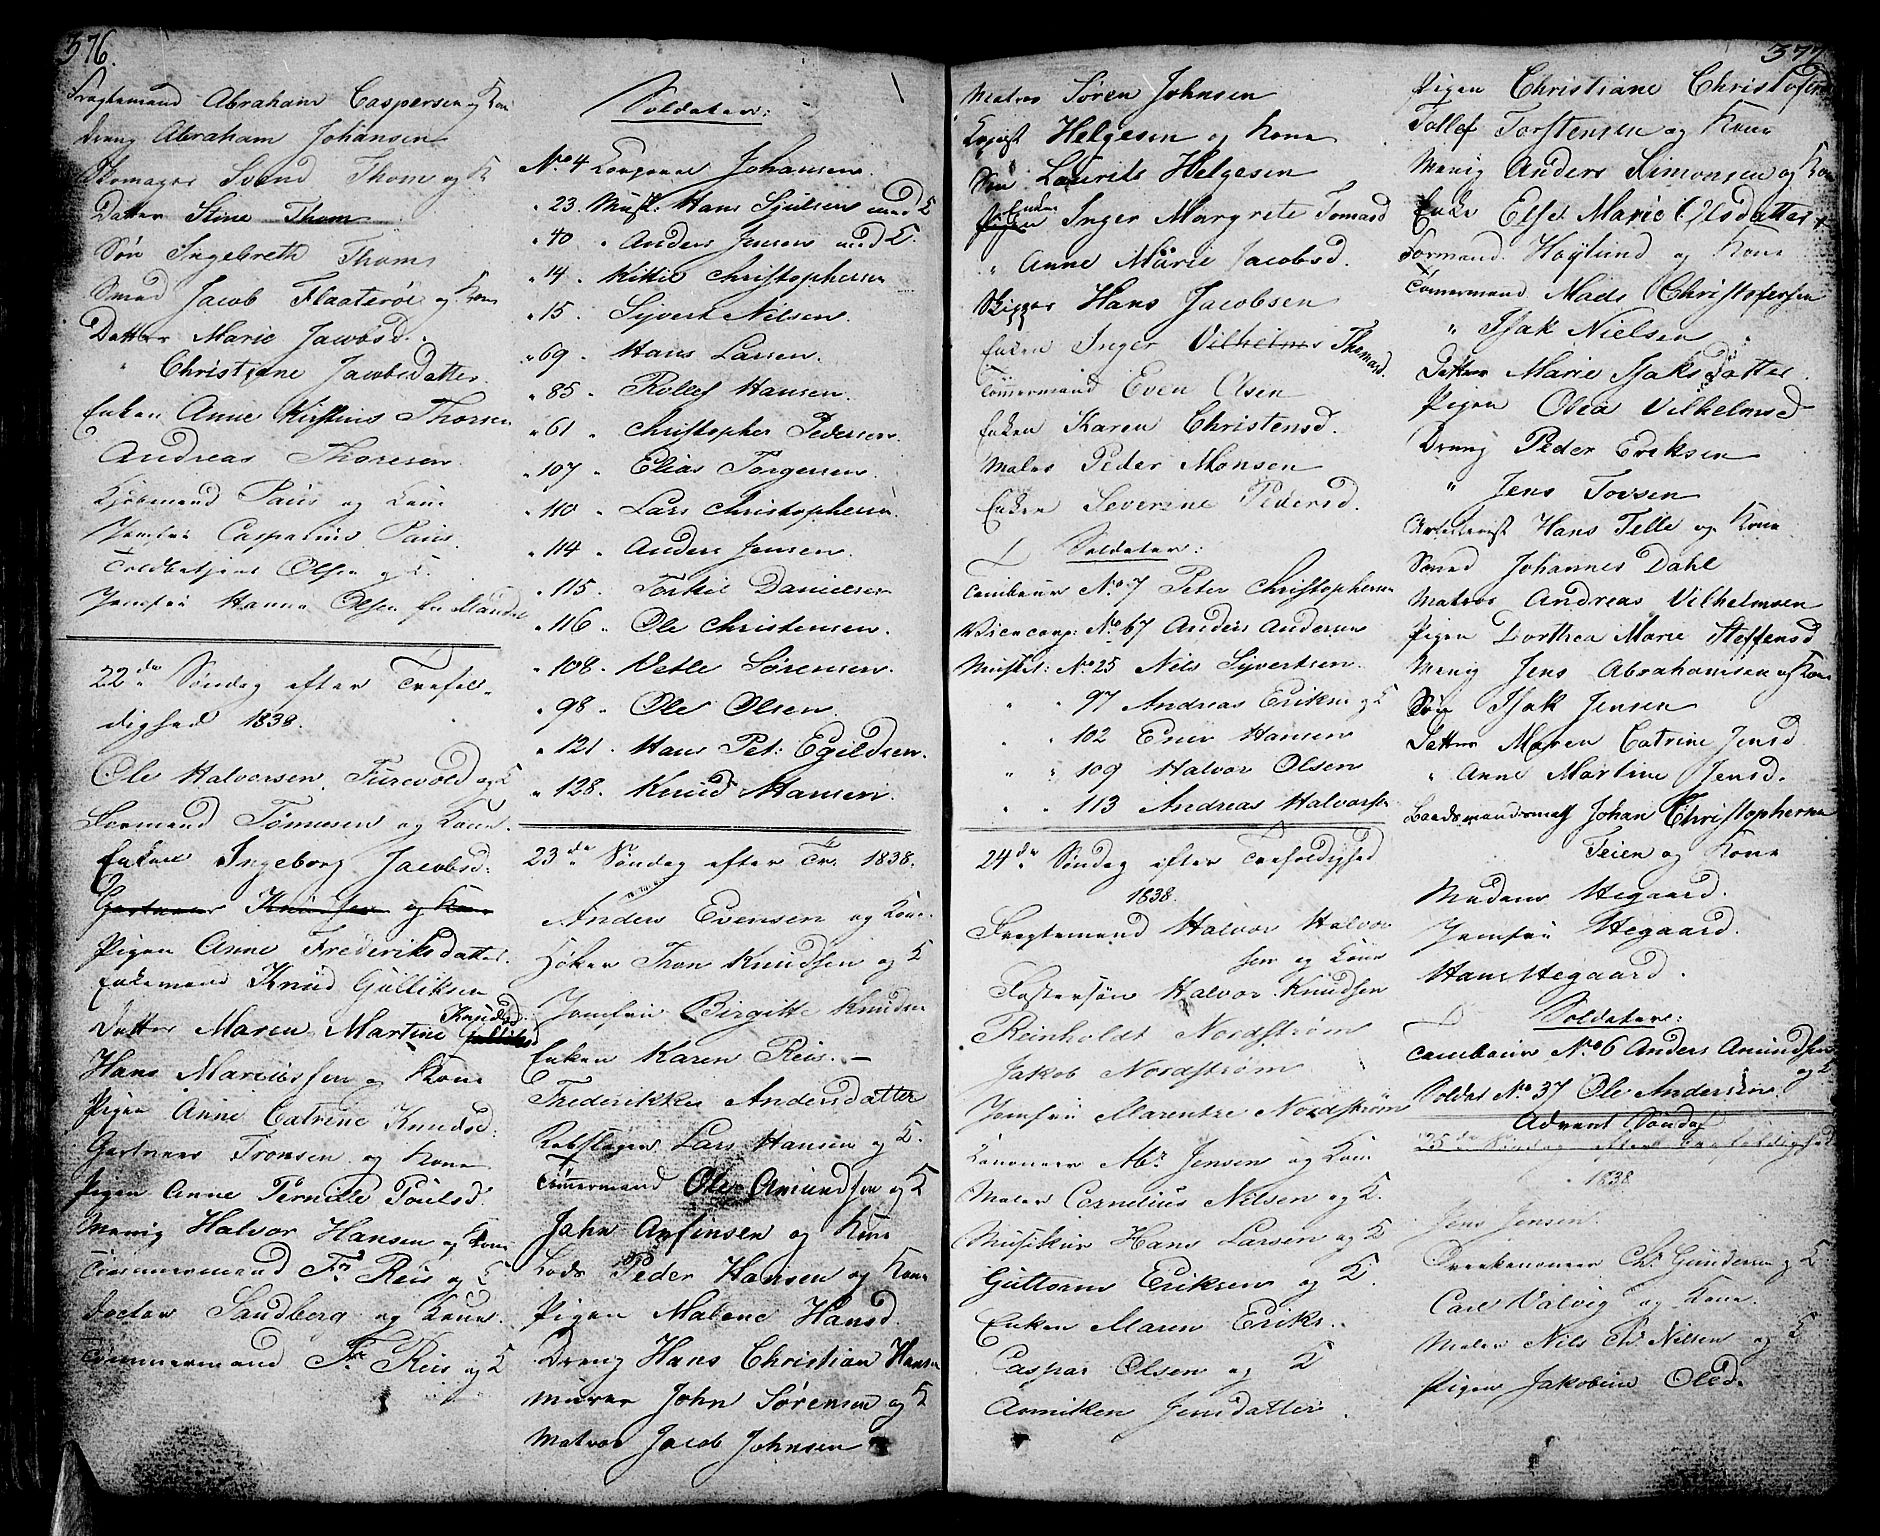 376.
Fragtemand Abraham Caspersen og Kone
Dreng Abraham Johansen
Skomager Svend Thom og K
Datter Stine Thom
Søn Ingebreth Thom
Smed Jacob Flaaterøe og Kone
Datter Marie Jacobsd.
" Christiane Jacobsdatter
Enken Anne Kirstine Thorsen
Andreas Thoresen
Kjøbmand Paus og Kone
Jomfru Caspaline Paus.
Toldbetjent Olsen og K.
Jomfru Hanna Olsen fra Mandal
22de Søndag efter Trefol-
dighed 1838.
Ole Halvorsen Turevold og K
Formand Tømmesen og Kone.
Enken Ingeborg Jacobsd:
Gartner Knudsen og Kone
Pigen Anne Frederiksdatter.
Enkemand Knud Gulliksen
Knudsd
Datter Maren Martine Gulliksd
Hans Mariussen og Kone
Pigen Anne Catrine Knudsd:
Gartner Tronsen og Kone
Pigen Anne Pernille Poulsd.
Menig Halvor Hansen og Kone
Tömmermand Fr Reis og K
Doctor Sandberg og Kone.
Tömmermand Fr Reis og K
Soldater:
No. 4 Corporal Johansen.
" 23. Musk: Hans Sjulsen med K
" 40 " Anders Jensen med K.
" 14. " Kittil Christophersen
" 15. " Syvert Nilsen.
" 69. " Hans Larsen.
" 85. " Rollef Hansen.
" 61 " Christopher Pedersen.
" 107. " Elias Torgersen
" 110 " Lars Christophersen.
" 114 " Anders Jensen.
" 115. " Torkil Danielsen
" 116 " Ole Christensen.
" 108 " Vetle Sørensen.
" 98 " Ole Olsen.
" 121. " Hans Pet: Egildsen.
" 128. " Knud Hansen.
23de Søndag efter Tr. 1838.
Anders Evensen og Kone.
Høker Tron Knudsen og K
Jomfru Birgitte Knudsen
Enken Karen Reis. —
Frederikke Andersdatter
Rebslager Lars Hansen og K.
Tömmermand Ole Amundsen og K
John Arfinsen og Kone
Lods Peder Hansen og Kone
Pigen Malene Hansd.
Dreng Hans Christian Hansen
Murer John Sørensen og K
Matros Jacob Johnsen
377.
Matros Søren Johnsen
Kopist Helgesen og Kone
Søn Laurits Helgesen
Enken
Pigen Inger Margrete Tomasd
" Anne Marie Jacobsd.
Skipper Hans Jacobsen
Enken Inger Vilhelmes Thomasd.
Tömmermand Even Olsen
Enken Karen Christensd.
Maler Peder Monsen
Enken Severine Pedersd.
Soldater:
Tambour No. 7 Peter Christophersen
No. 67 Anders Andersen
Musket: No. 25 Nils Syvertsen.
" " 97 Andreas Eriksen og K
" " 102 Ener Hansen
" " 109 Halvor Olsen
" " 113 Andreas Halvorsen
24de Søndag efter Trefoldighed
1838.
Fragtemand Halvor Halvor
sen og Kone
Fostersøn Halvor Knudsen
Reinholdt Nordstrøm
Jakob Nordstrøm
Jomfru Marentze Nordstrøm
Kanoneer Mr. Jensen og Kone
Maler Cornelius Nilsen og K.
Musikus Hans Larsen og K
Guttorm Eriksen og K.
Enken Maren Eriks.
Caspar Olsen og K
Annikken Jensdatter.
Pigen Christiane Christofersd
Tollef Torstensen og Kone
Menig Anders Simonsen og Kone
Enke Else Marie Olsdatter
Formand Høylund og Kone
Tömermand Mads Christofersen
" Isak Nielsen
Datter Marie Isaksdatter.
Pigen Olea Vilhelmsd
Dreng Peder Eriksen
" Jens Tovsen
Hans Telle og Kone
Smed Johannes Dahl
Matros Andreas Vilhelmsen
Pigen Dorthea Marie Steffensd
Menig Jens Abrahamsen og Kone
Søn Isak Jensen
Datter Maren Catrine Jensd.
" Anne Martine Jensd.
Baadsmandsmat Johan Christophersen
Feien og Kone
Madam Hegaard.
Jomfru Hegaard.
Hans Hegaard.
Soldater:
Tambour No. 6 Anders Amundsen
og K
Soldat No. 37 Ole Andersen.
Advent Søndag
25de Søndag efter Trefoldighed
1838
Jens Jensen.
Chr. Gundersen og K
Carl Valvig og Kone.
Maler Nils Chr. Nilsen og K
Pigen Jakobine Olsd.